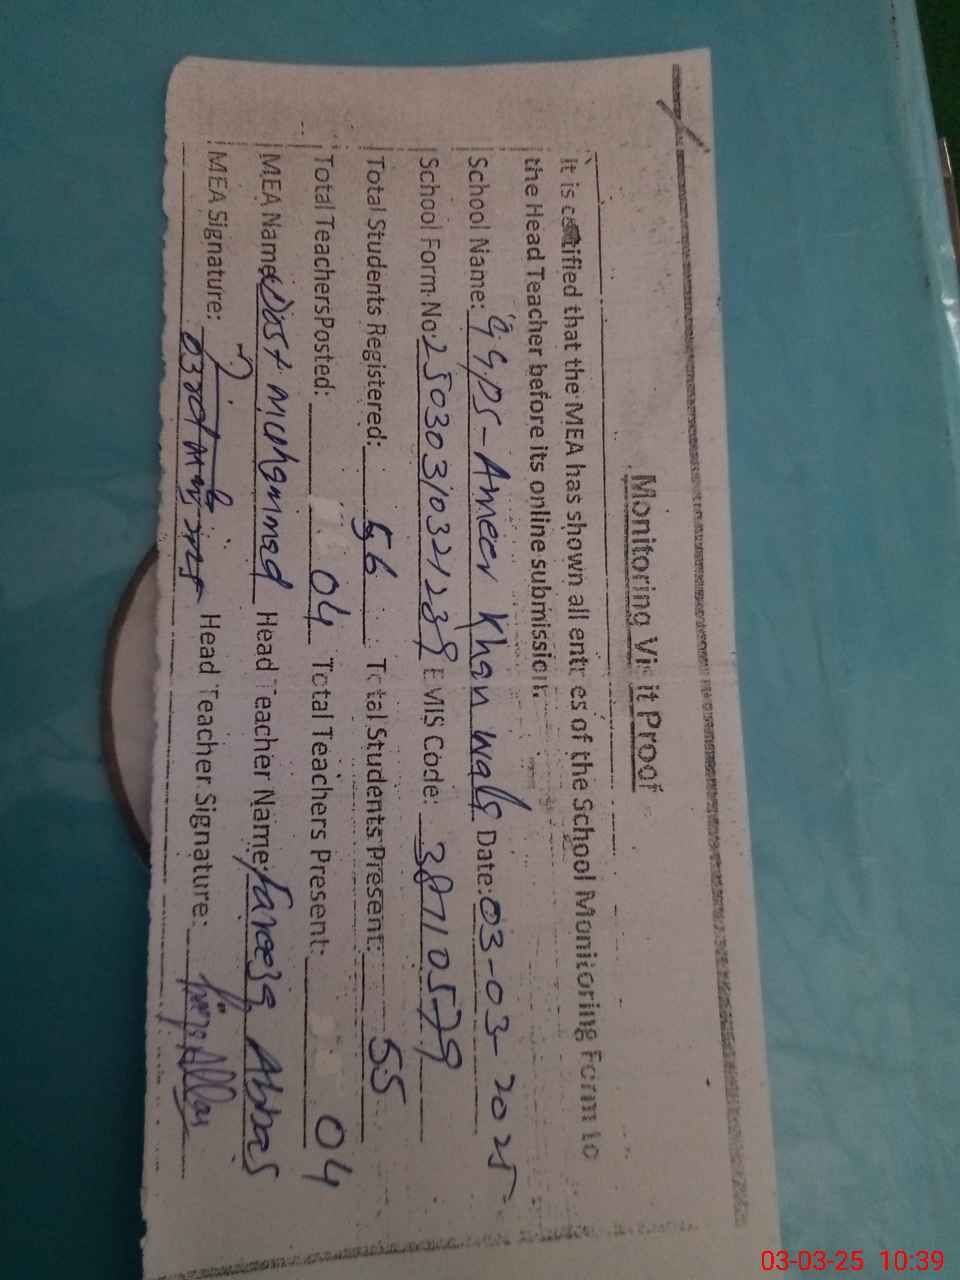 Monitoring Visit Proof
It is certified that the MEA has shown all entries of the School Monitoring Form to
the Head Teacher before its online submission.
School Name: GGPS-Ameer Khan wala Date: 03-03-2025
School Form No: 25030310321239 EMIS Code: 38710579
Total Students Registered: 56 Total Students Present: 55
Total Teachers Posted: 04 Total Teachers Present: 04
MEA Name: Dost Muhammad Head Teacher Name: Fareeza Abbas
MEA Signature: Head Teacher Signature:
03-03-25 10:39